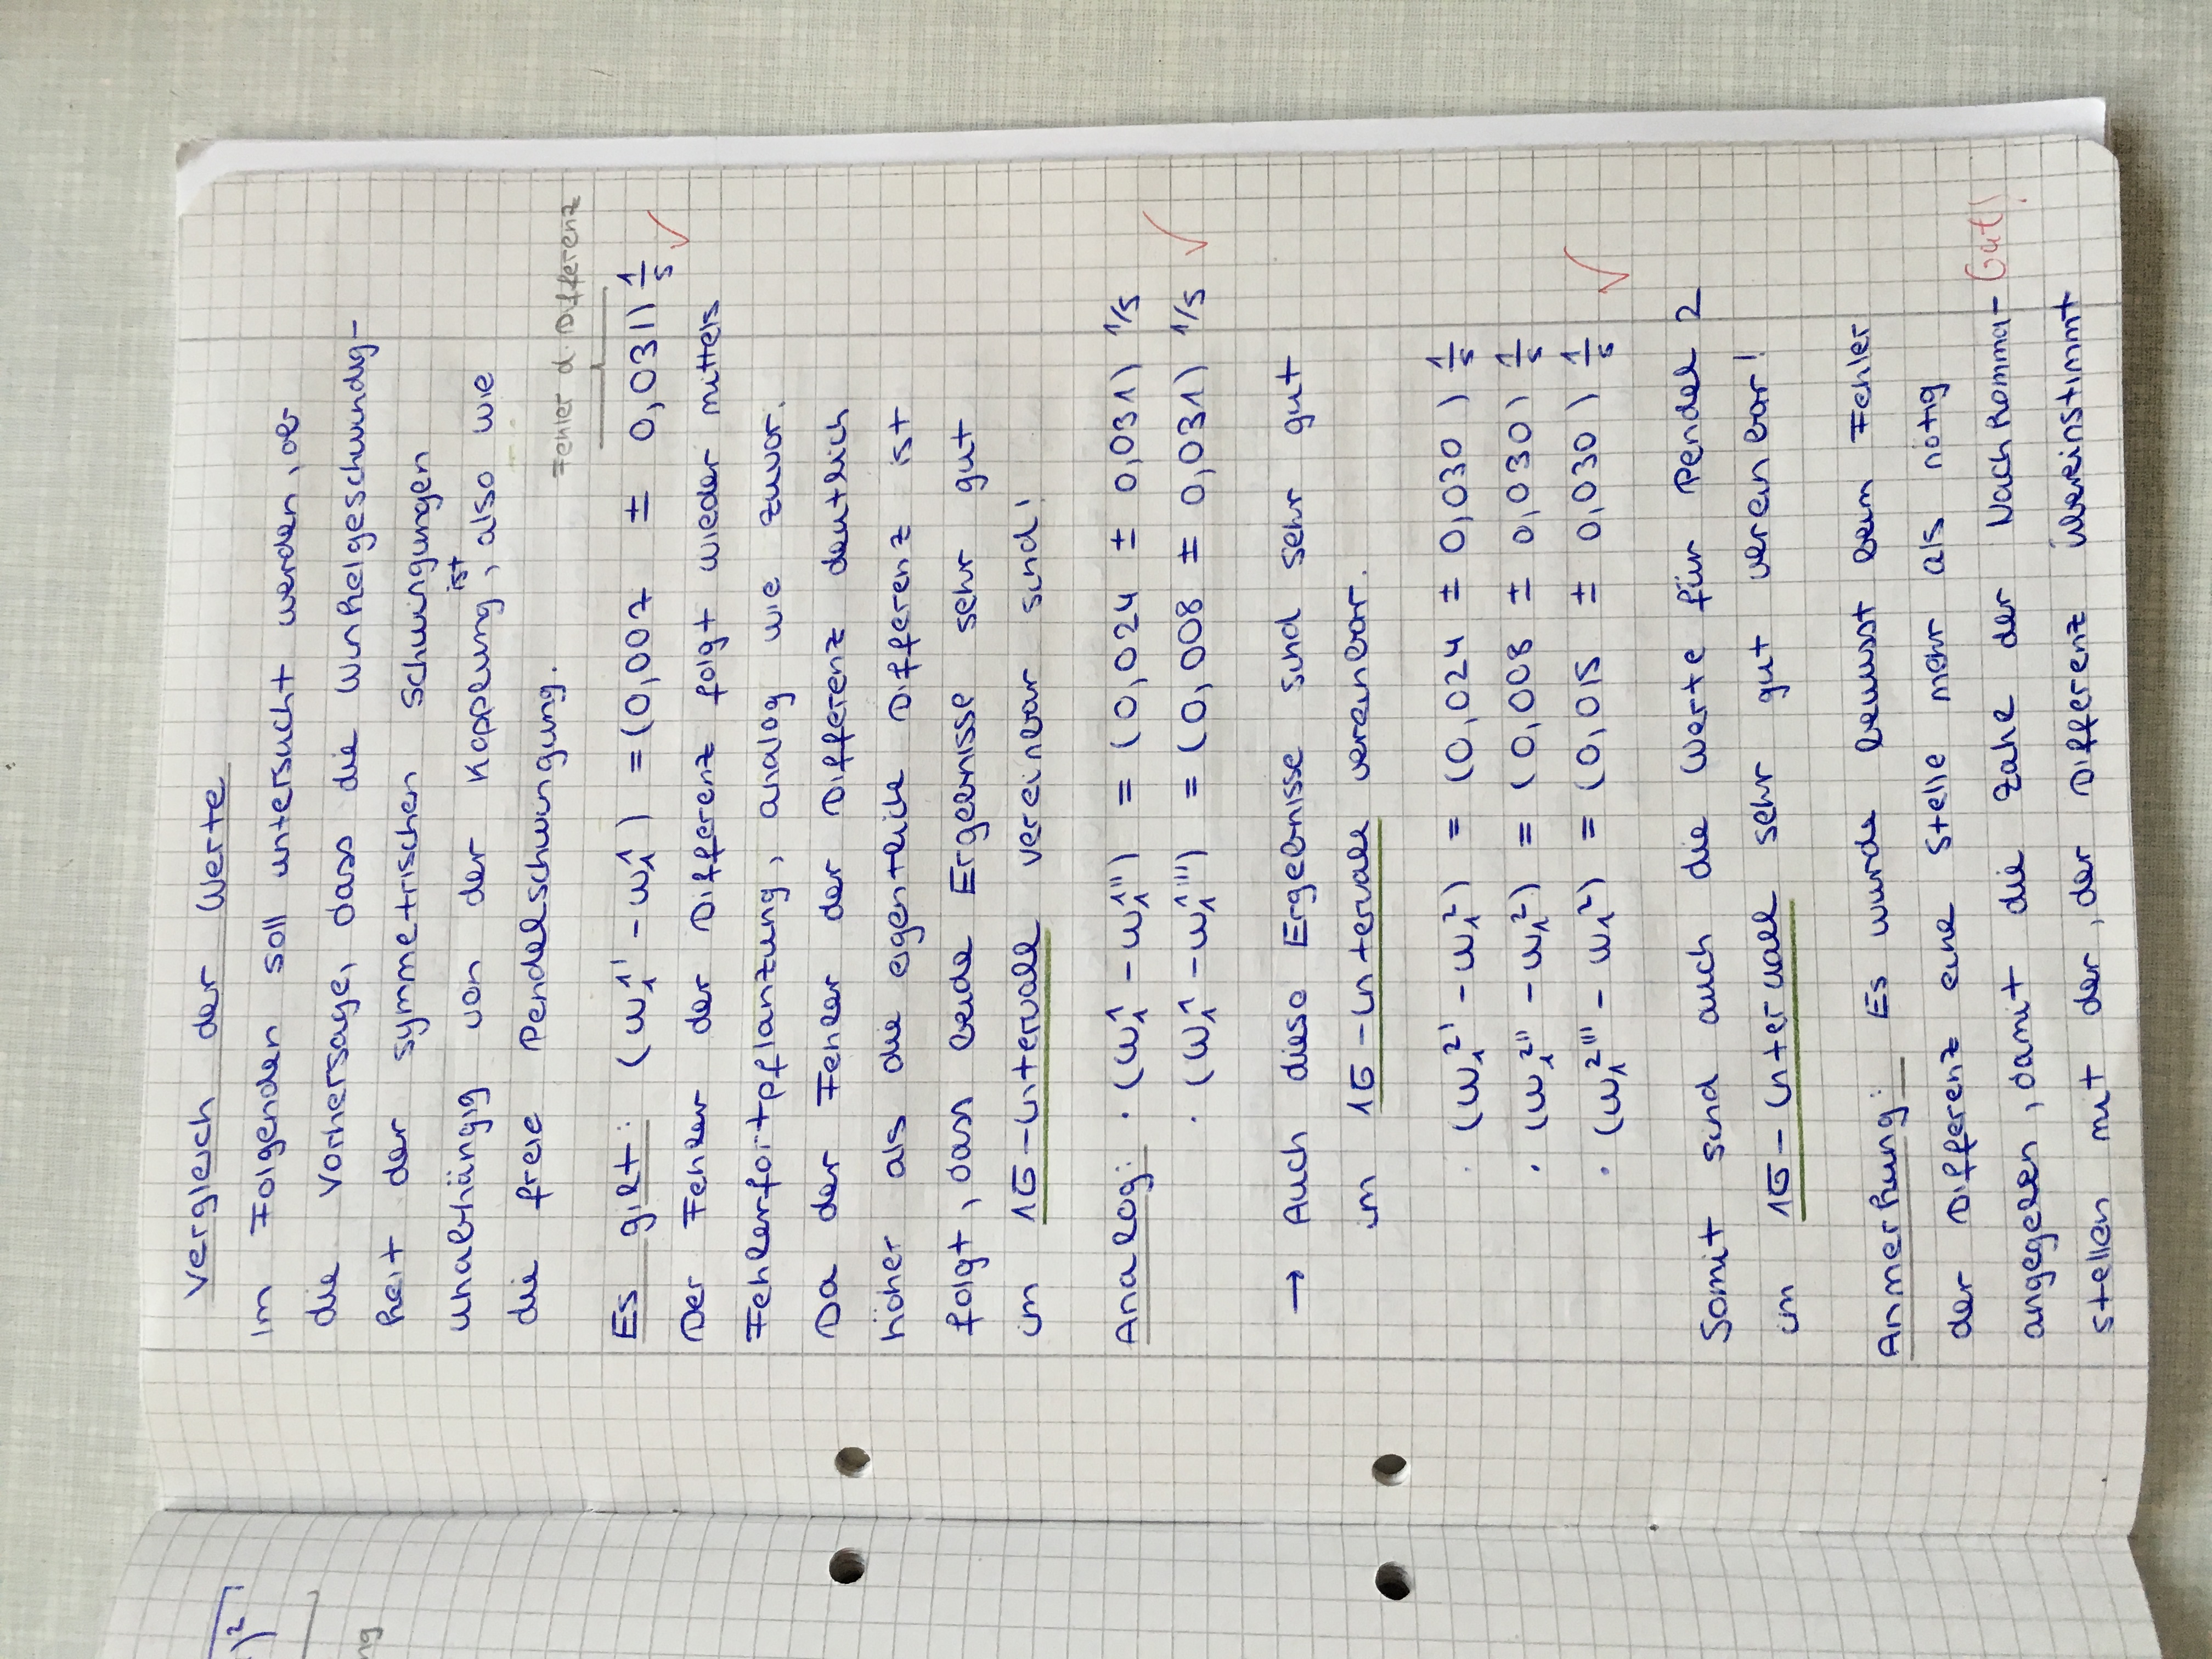 )²
ng
Vergleich der Werte
Im Folgenden soll untersucht werden, ob
die Vorhersage, dass die Winkelgeschwindig-
keit der symmetrischen Schwingungen
unabhängig von der Kopplung ist, also wie
die freie Pendelschwingung.
Fehler d. Differenz
Es gilt: (ω₁¹' - ω₁¹) = (0,007 ± 0,031) 1/s ✓
Der Fehler der Differenz folgt wieder mittels
Fehlerfortpflanzung, analog wie zuvor.
Da der Fehler der Differenz deutlich
höher als die eigentliche Differenz ist
folgt, dass beide Ergebnisse sehr gut
im 1σ-Intervall vereinbar sind!
Analog: · (ω₁¹ - ω₁¹'') = (0,024 ± 0,031) 1/s
· (ω₁¹ - ω₁¹''') = (0,008 ± 0,031) 1/s ✓
→ Auch diese Ergebnisse sind sehr gut
im 1σ-Intervall vereinbar.
· (ω₁²' - ω₁²) = (0,024 ± 0,030) 1/s
· (ω₁²'' - ω₁²) = (0,008 ± 0,030) 1/s
· (ω₁²''' - ω₁²) = (0,015 ± 0,030) 1/s ✓
Somit sind auch die Werte für Pendel 2
im 1σ-Intervall sehr gut vereinbar!
Anmerkung: Es wurde bewusst beim Fehler
der Differenz eine Stelle mehr als nötig
angegeben, damit die Zahl der Nachkomma- Gut!
stellen mit der, der Differenz übereinstimmt